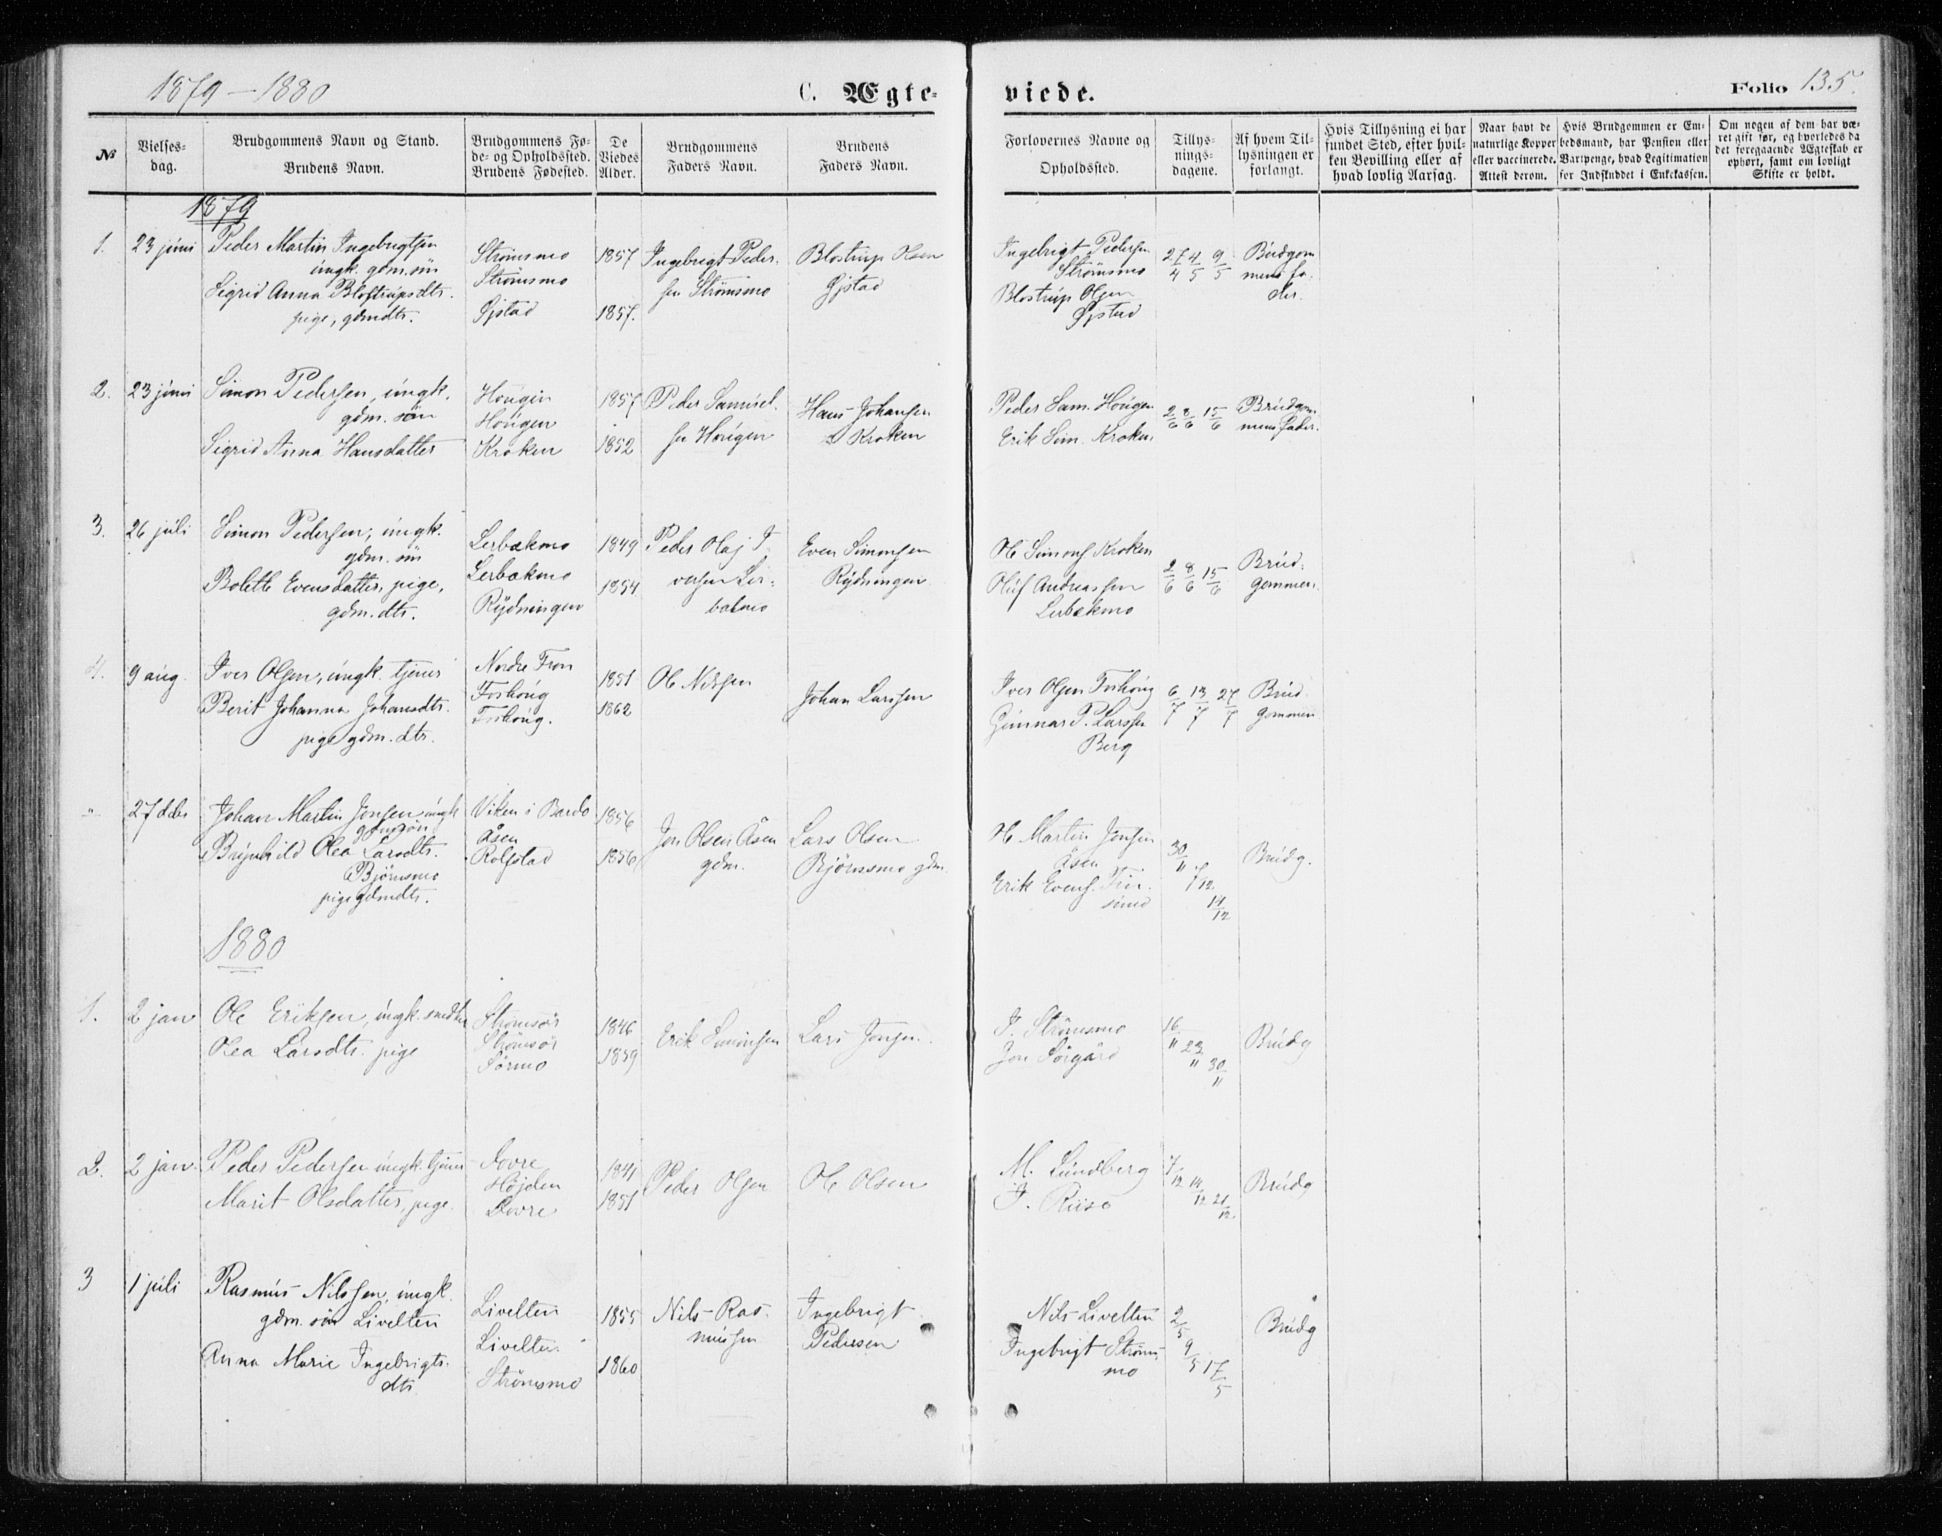 1879 – 1880
C. Ægte-
viede.
Folio 135.
No
Vielses-
dag.
Brudgommens Navn og Stand.
Brudens Navn.
Brudgommens Fø-
de- og Opholdssted.
Brudens Fødested.
De
Viedes
Alder.
Brudgommens
Faders Navn.
Brudens
Faders Navn.
Forlovernes Navne og
Opholdssted.
Tillys-
nings-
dagene.
Af hvem Til-
lysningen er
forlangt.
Hvis Tillysning ei har
fundet Sted, efter hvil-
ken Bevilling eller af
hvad lovlig Aarsag.
Naar havt de
naturlige Kopper
eller vaccinerede.
Attest derom.
Hvis Brudgommen er Em-
bedsmand, har Pension eller
Vartpenge, hvad Legitimation
for Indskuddet i Enkekassen.
Om nogen af dem har væ-
ret gift før, og hvorledes da
det foregaaende Ægteskab er
ophørt, samt om lovligt
Skifte er holdt.
1879
1. 23 juni
Peder Martin Ingebrigtsen
ungk. gdm. sön
Sigrid Anna Blostrupsdtr.
pige, gdmdtr.
Strömsmo
Strömsmo
Øjstad
1857
1857.
Ingebrigt Peder-
sen Strömsmo
Blostrup Olsen
Øjstad
Ingebrigt Pedersen
Strömsmo
Blostrup Olsen
Øjstad
27/4 4/5 9/5
Brudgom
mens fa-
der.
2. 23 juni
Simon Pedersen, ungk.
gdm. sön
Sigrid Anna Hansdatter
Hougen
Hougen
Kroken
1857
1852
Peder Samuel-
sen Hougen
Hans Johansen
Kroken
Peder Sam. Hougen
Erik Sim. Kroken
2/6 8/6 15/6
Brudgom
mens fader.
3. 26 juli
Simon Pedersen, ungk.
gdm. sön
Bolette Evensdatter, pige,
gdm. dtr.
Lerbækmo
Lerbækmo
Rydningen
1849
1854
Peder Olaj I-
versen Ler-
bækmo
Even Simonsen
Rydningen
Ole Simons. Kroken
Oluf Andreassen
Lerbækmo
2/6 8/6 15/6
Brud-
gommen.
4. 9 aug.
Iver Olsen, ungk. tjener
Berit Johanna Johansdtr.
pige gdm. dtr.
Nordre Fron
Foshoug
Foshoug.
1851
1862
Ole Nilsen
Johan Larssen
Iver Olsen Foshoug
Gunnar P. Larssen
Berg
6/7 13/7 27/7
Brud
gommen
" 27 dcbr
Johan Martin Jonsen, ungk
gdmsön
Brynhild Olea Larsdtr.
Björnsmo
pige gdmdtr.
Viken i Bardo
Åsen
Rolfstad
1856
1856
Jon Olsen Åsen
gdm.
Lars Olsen
Björnsmo gdm.
Ole Martin Jonsen
Åsen
Erik Evens.
30/11 7/12 14/12
Brudg.
1880
1. 2 jan
Ole Eriksen, ungk.
Olea Larsdtr. pige
Strömsör
Strömsör
Sörmo
1846
1859
Erik Simonsen
Lars Jonsen.
I. Strömsmo
Jon Sörgård
16/11 23/11 30/11
Brudg
2. 2 jan.
Peder Pedersen ungk. tjener
Marit Olsdatter, pige.
Dovre
Højden
Dovre
1841
1851
Peder Olsen
Ole Olsen
M. Lundberg
P. Riise
7/12 14/12 21/12
Brudg
3 1 juli
Rasmus Nilssen, ungk.
gdm. sön Livelten
Anna Marie Ingebrigts-
dtr
Livelten
Livelten
Strömsmo
1855
1860
Nils Ras-
mussen
Ingebrigt
Pedersen
Nils Livelten
Ingebrigt Ströms-
mo
2/5 9/5 17/5
Brudg